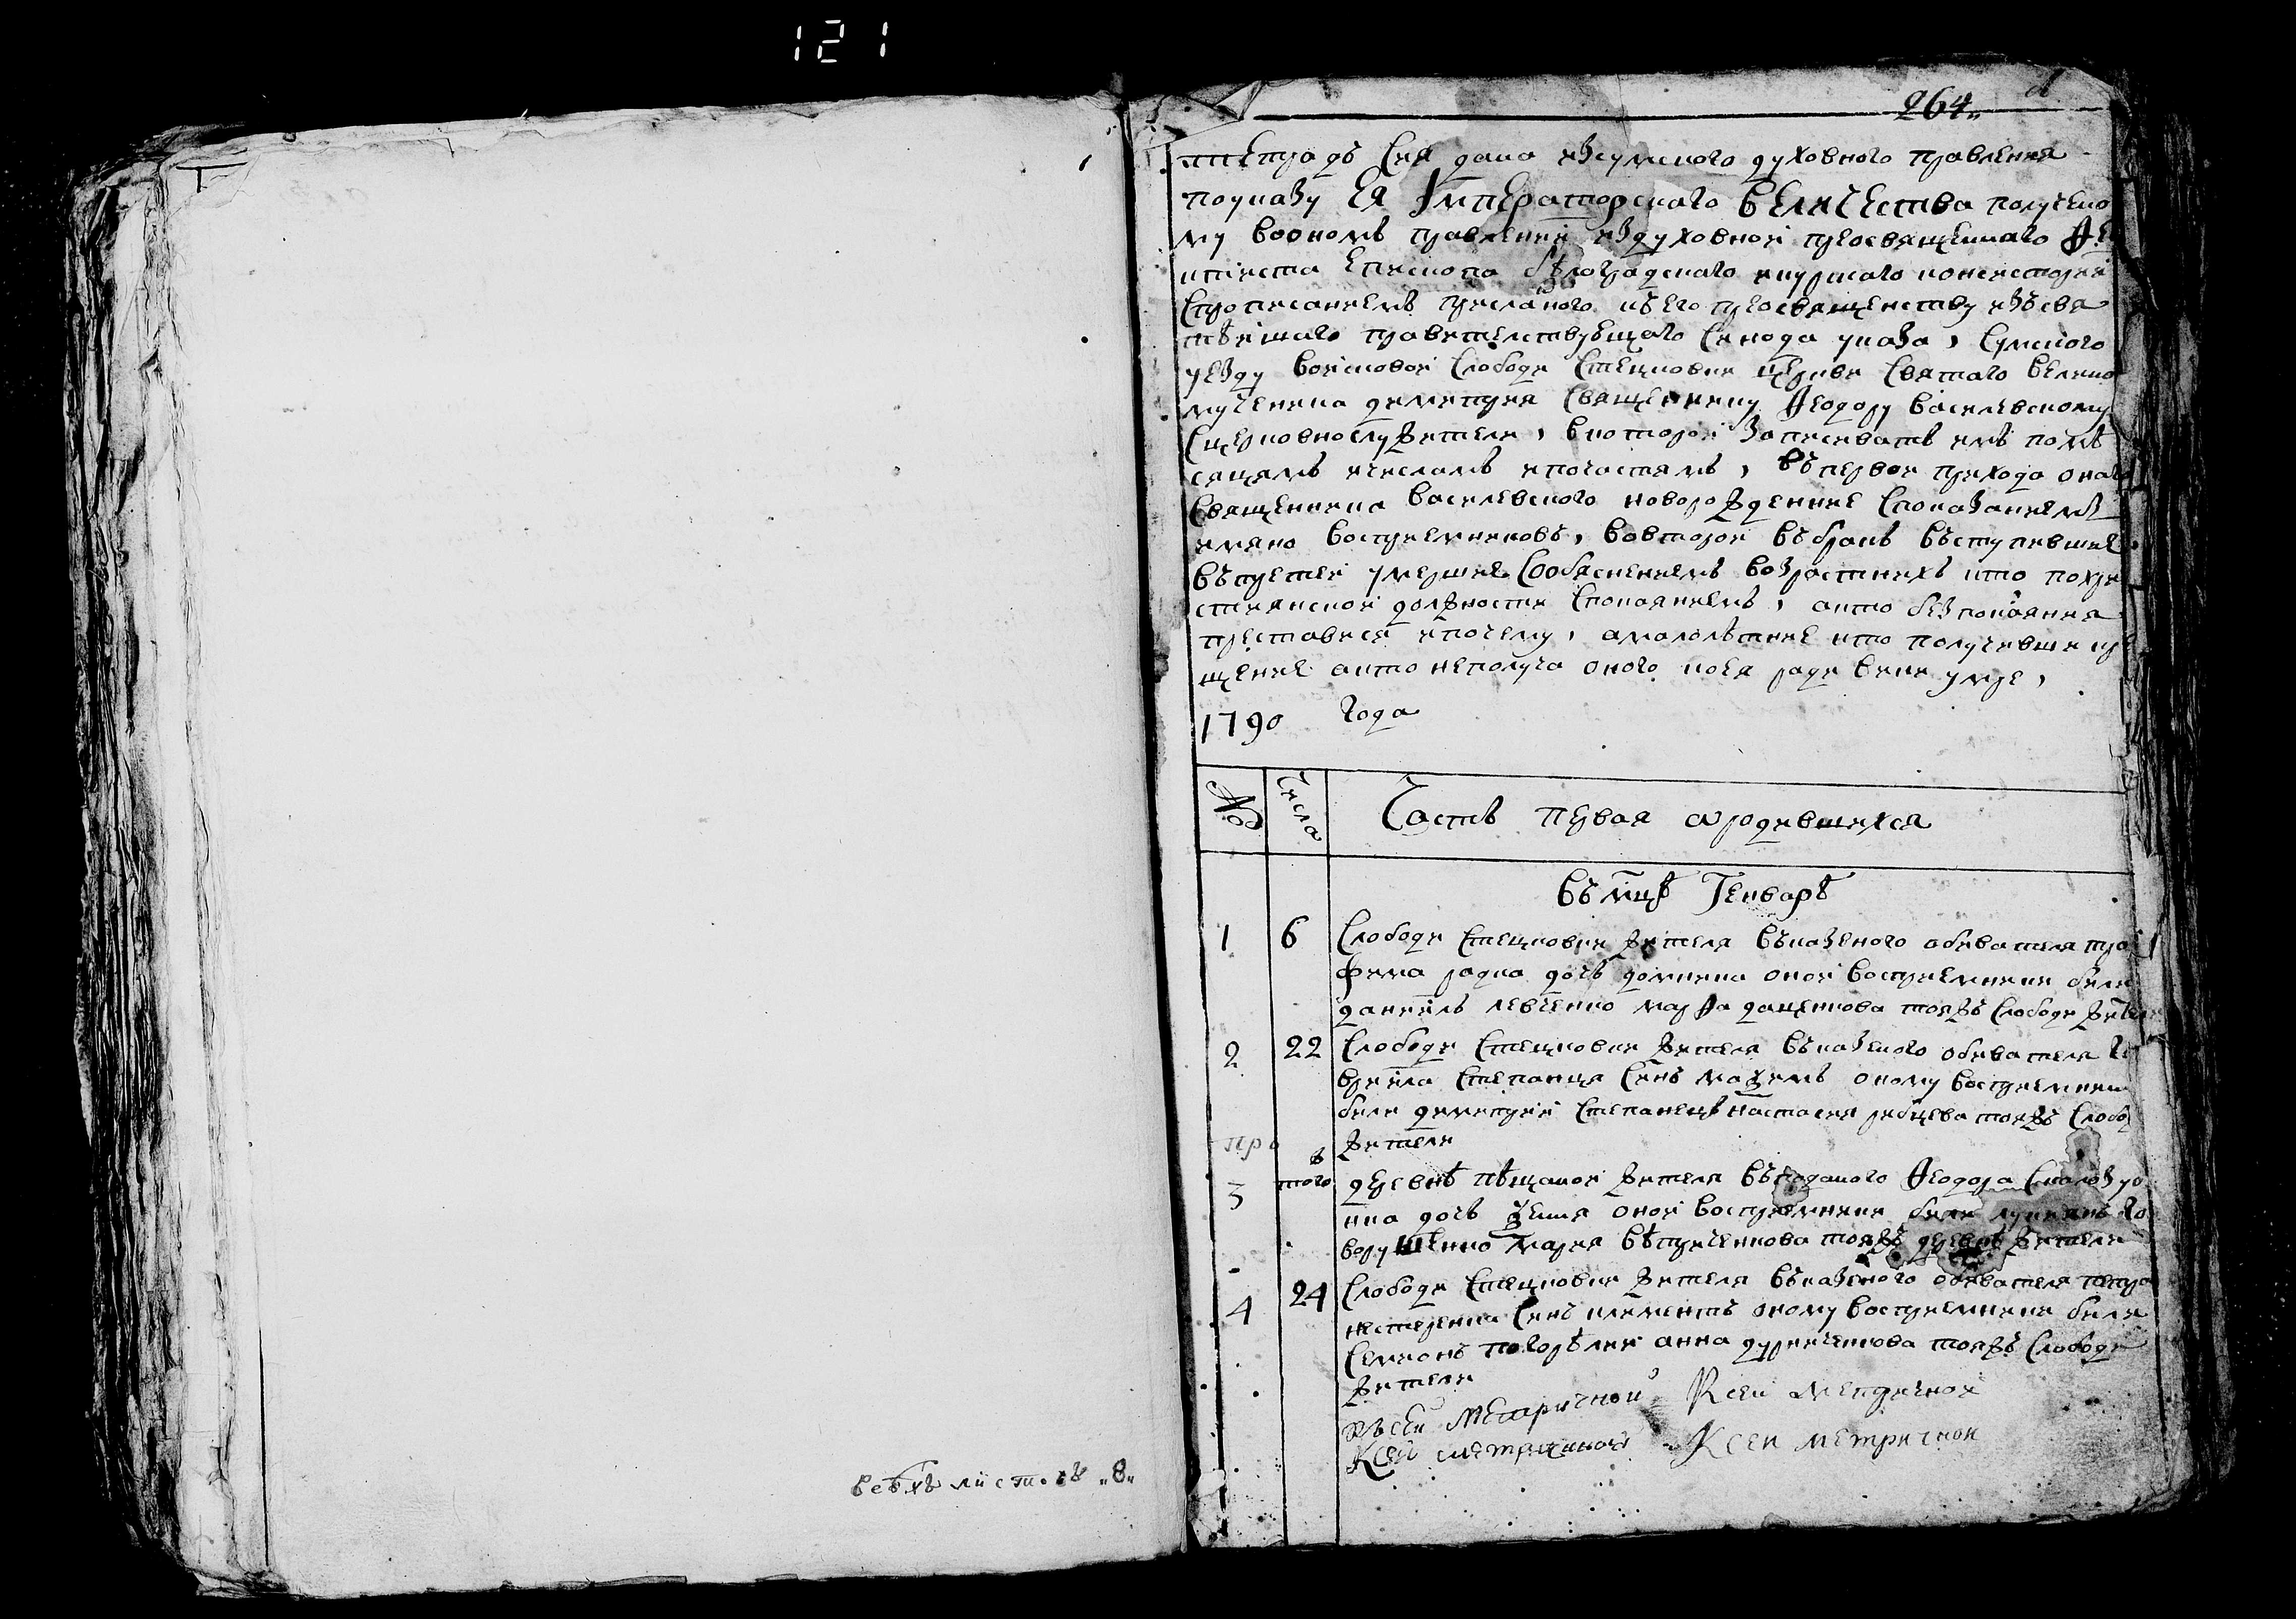 121
264
тетрадь Сия дана изсумского духовного правления
поуказу ЕЯ Императорскаго ВЕЛИЧЕства получено
му вооном правлении издуховной преосвященнаго Ѳео
ктиста Епископа бѣлоградскаго икурскаго консистории
Спрописанием присланого къего преосвященству изъсвя
тѣишаго правителствующаго Синода указа, Сумского
уезду воисковои Слободи Стецковки церкви Святаго велико
мученика димитрия Священнику Ѳеодору василевскому
Сцерковнослужители, вкоторои записивать имъ помѣ
сяцамъ ичисламъ ипочастямъ, въпервои прихода онаго
Священника василевского новорожденние Споказаниемъ
имяно восприемниковъ, вовторои въбракъ въступившие
вътретеи умершие Собяснениемъ возрастнихъ кто похри
стиянскои должности Спокаяниемъ, акто безпокаяния
преставися ипочему, амалолѣтние кто получивши кре
щение акто неполуча оного коея ради вини умре,
1790 года
№ Числа Часть первая ородившихся
въ мцѣ Генварѣ
1 6 Слободи Стецковки жителя въказеного обивателя тро
фима радка дочь домника оной восприемники били
даниилъ левченко марѳа даценкова тояжъ Слободи жители
2 22 Слободи Стецковки жителя въказеного обивателя га
вриила Степанця Синъ мазимъ оному восприемники
били димитрий Степанецъ настасия рибцева тояжъ Слобо
жители
про
3 того деревнѣ пѣщаной жителя въподаного Ѳеодора
дочь оной восприемники били
мария тояжъ деревнѣ жители
4 24 Слободи Стецковки жителя въказеного обивателя петра
нестеренка Синъ климентъ оному восприемники били
Семионъ погорѣлий анна дуриченкова тояжъ Слободи
жители
Къ сей метричной Ксеи метричнои
Ксеи метричной Ксеи метричнои
всѣхъ листовъ „8„